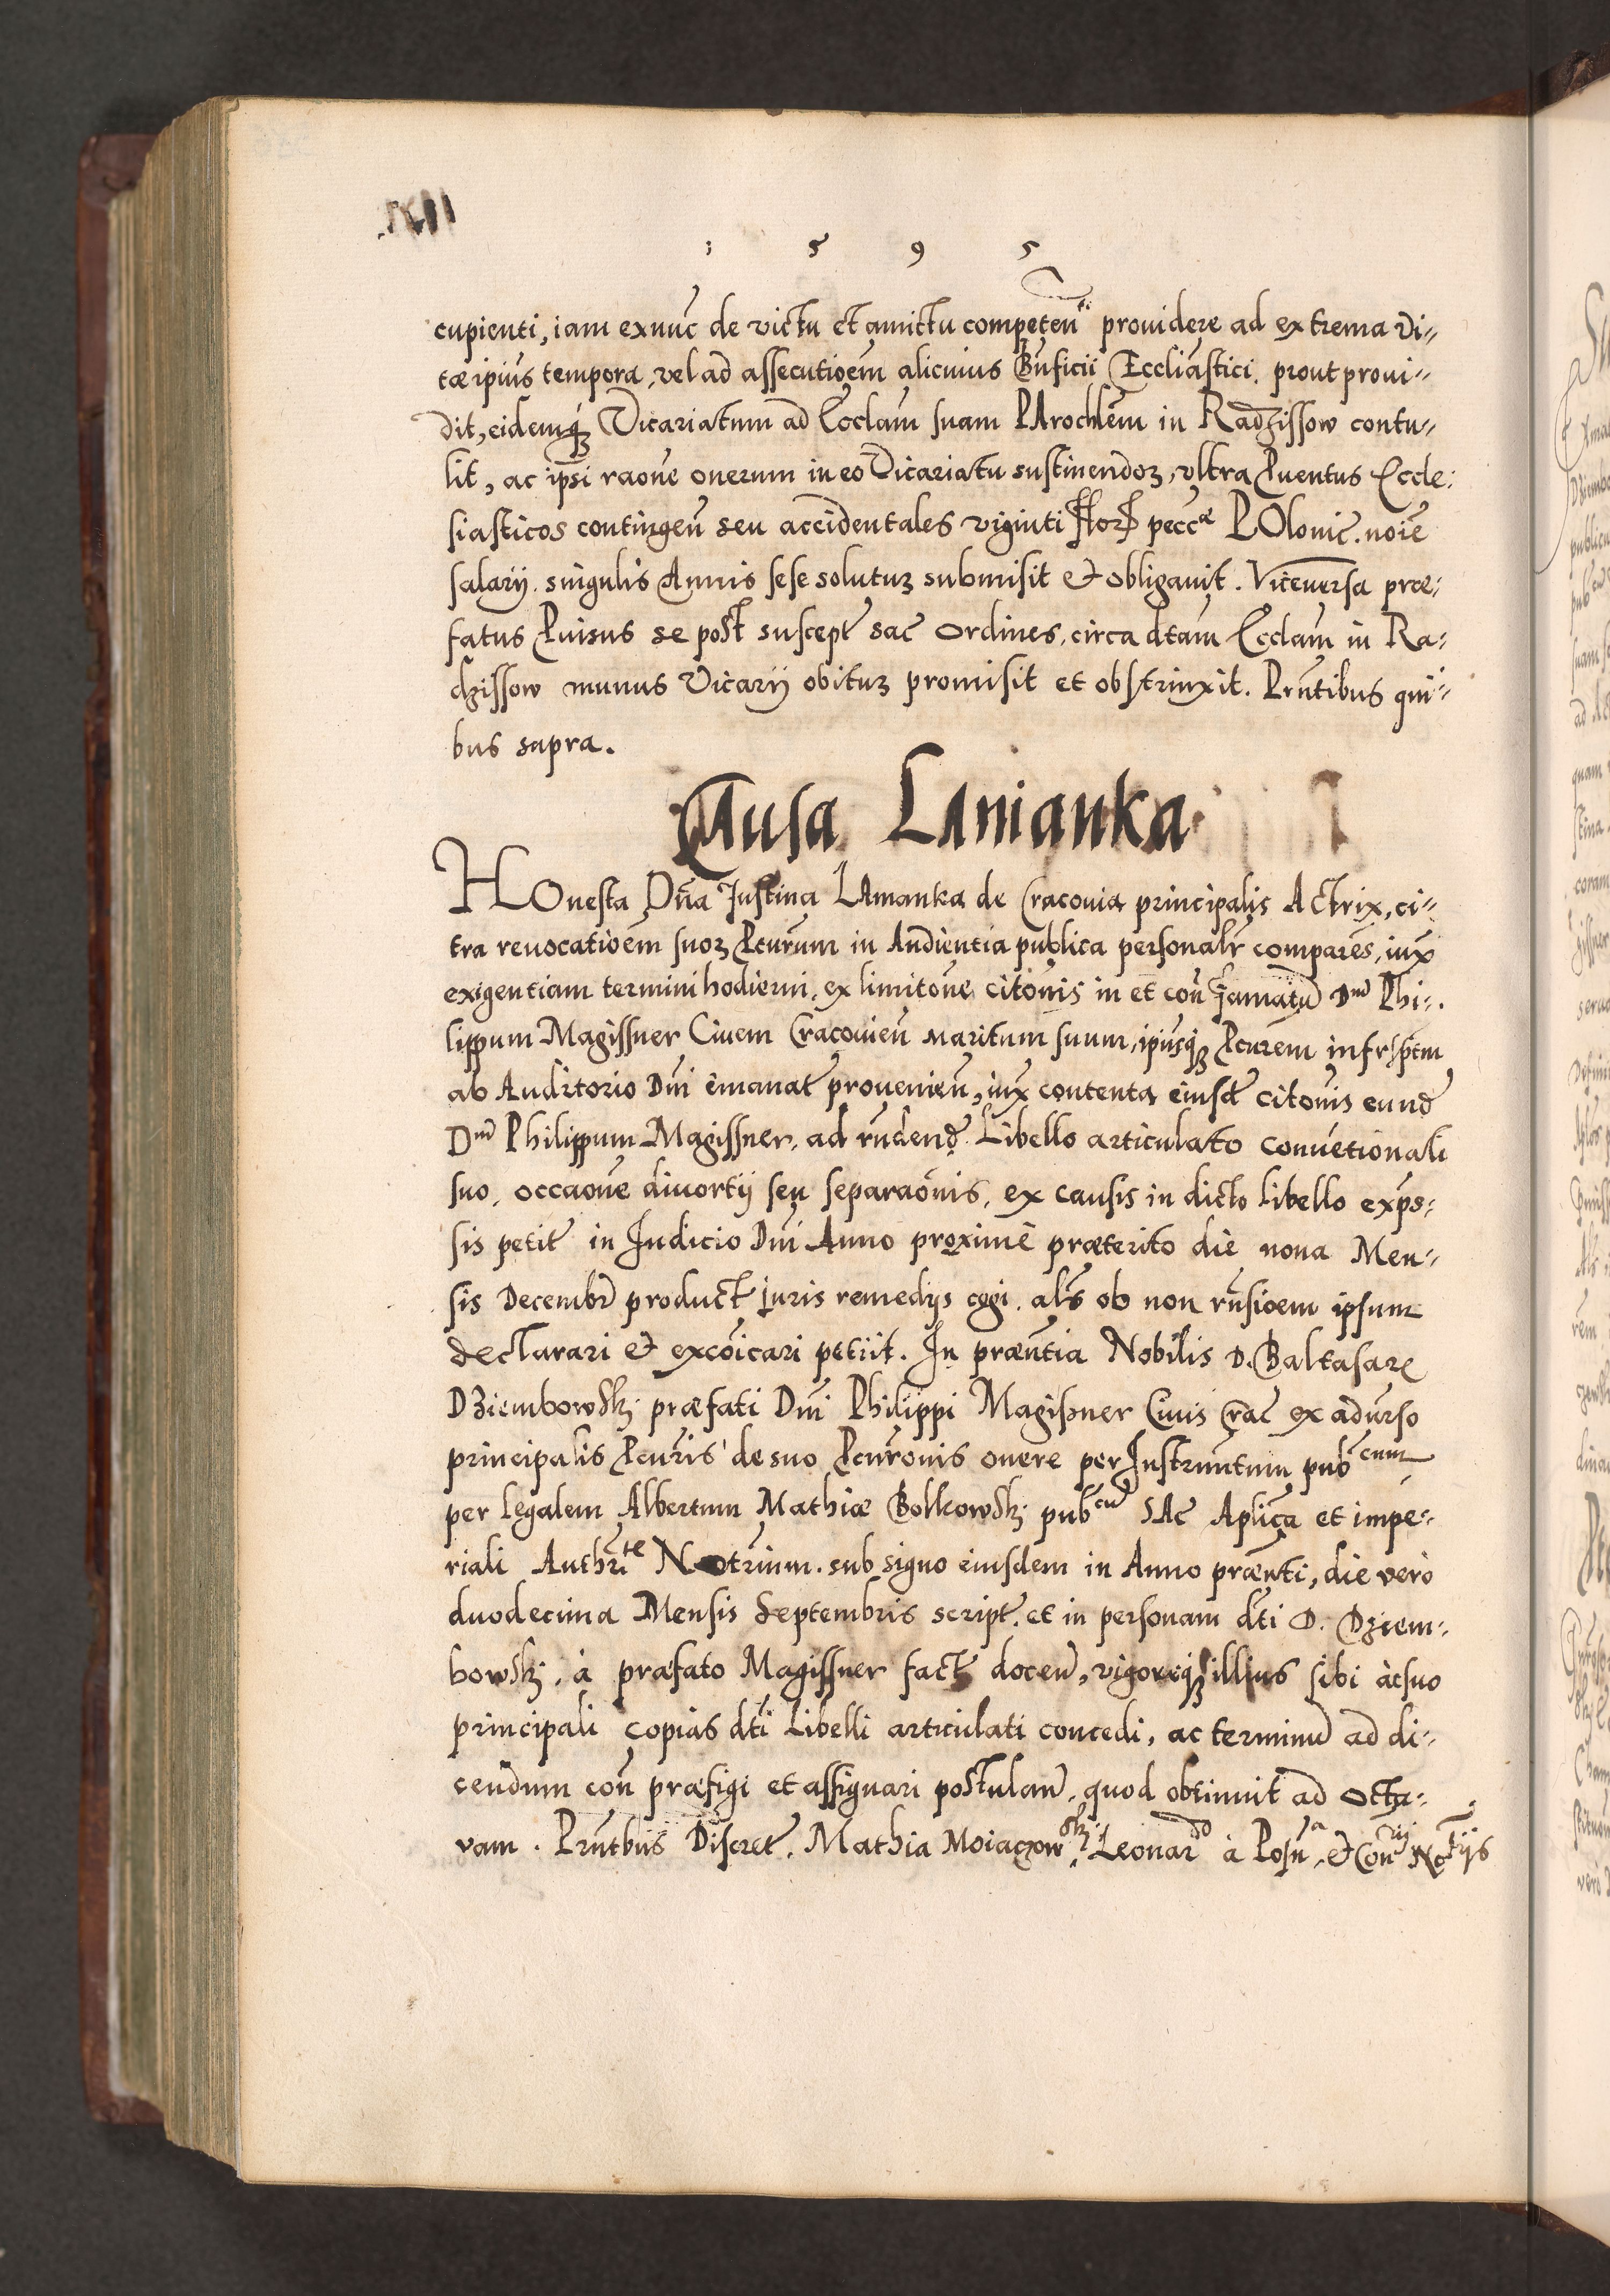 1 5 9 5
cupienti, iam exnūc de victu et amictu competen̄ti prouidere ad extrema vi〃
tæ ip̄ius tempora, vel ad assecutiōem alicuius Bn̄ficii Eccliāstici. prout proui〃
dit, eidemqꜗ Vicariatum ad Ecclām suam PArochlēm in Radzissow contu〃
lit, ac ip̄si raōne onerum in eo Vicariatu sustinendoꝝ, vltra Puentus Eccle:
siasticos contingen̄ seu accidentales viginti flor pecc̄æ POlonic̄. noīe
salarij. singulis Annis sese soluturꝫ submisit et obligauit. Viceuersa præ:
fatus Puisus se post suscept̄ sac̄ Ordines, circa dtām Ecclām in Ra:
dzissow munus Vicarij obiturꝫ promisit et obstrinxit. Prn̄tibus qui〃
bus sapra.
CAusa LAnianka
HOnesta Dn̄a Justina LAmanka de Cracouia principalis Actrix, ci〃
tra reuocatiōem suoꝝ Pcurūm in Audientia publica personalr̄ comparēs, iux̄
exigentiam termini hodierni, ex limitōne citōnis in et con̄ famatū Dnū Phi:
lippum Magissner Ciuem Cracouien̄ maritum suum, ip̄iusqꜗ Pcurēm infrsp̄tm
ab Auditorio Dn̄i emanat̄ prouenien̄, iux̄ contenta eiusd̄ citōnis eund̄
Dnū Philippum Magissner, ad rn̄dend̄. Libello articulato conuētionali
suo, occaōne diuortij seu separaōnis, ex causis in dicto Libello exp̄s:
sis petit̄ in Judicio Dn̄i Anno proximè præterito die nona Men〃
sis Decembr̄ product̄ juris remedijs cogi. als̄ ob non rn̄sioēm ipsum
declarari et excōicari petiit. In præn̄tia Nobilis D. Baltasare
Dziembowskj præfati Dn̄i Philippi Magissner Ciuis Crac̄ ex aduērso
principalis Pcurīs de suo Pcurōnis onere per Instrun̄tum pub̄cum
per legalem Albertum Mathiæ Bolkowskj pub̄cū SAc̄ Aplicā et impe:
riali Authr̄te Notrīum. sub signo eiusdem in Anno præn̄ti, die verò
duodecima Mensis Septembris script̄. et in personam dt̄i D. Dziem:
bowskj, à præfato Magissner fact̄ docen̄, vigoreqꜗ illius sibi àc suo
principali copias dt̄i Libelli articulati concedi, ac terminū ad di:
cendum con̄ præfigi et assignari postulan̄. quod obtinuit ad octa:
vam. Prn̄tbus Discret̄. Mathia Moiaczowskj. Leonardo à Posn̄a, et Con̄rij Notijs